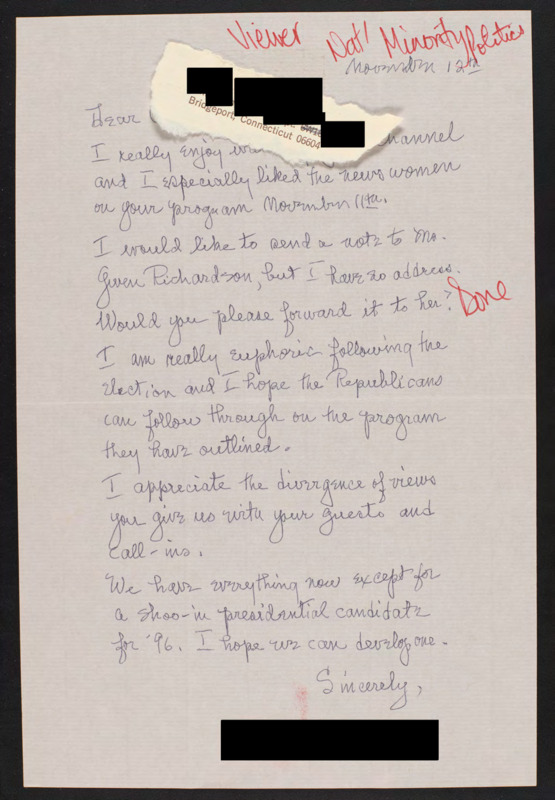 Viewer Nat'l Minority Politics
November 12th
Bridgeport, Connecticut 06604
Dear
I really enjoy channel
and I especially liked the news women
on your program November 11th.
I would like to send a note to Ms.
Gwen Richardson, but I have no address.
Would you please forward it to her? Done
I am really euphoric following the
election and I hope the Republicans
can follow through on the program
they have outlined.
I appreciate the divergence of views
you give us with your guests and
call-ins.
We have everything now except for
a shoo-in presidential candidate
for '96. I hope we can develop one.
Sincerely,